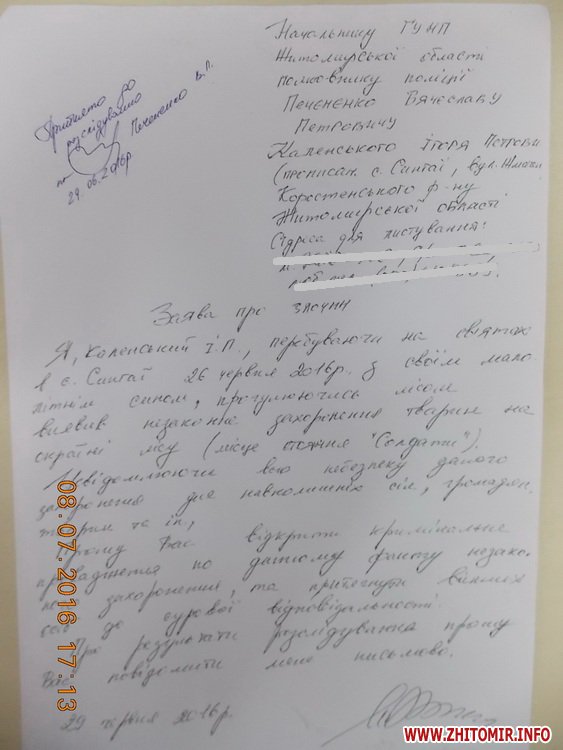 Начальнику ГУНП
Житомирської області
полковнику поліції
Печененко Вячеславу
Петровичу
Каленського Ігоря Петрови
(прописан с. Сингаї, вул. Жмаки
Коростенського р-ну
Житомирської області
Адреса для листування:
Прийнято до
розслідування
Печененко В.П.
29.06.2016р
Заява про злочин
Я, Каленський І.П., перебуваючи на святах
в с. Сингаї 26 червня 2016р. з своїм мало
літнім сином, прогулюючись лісом
виявив незаконне захоронення тварин на
окраїні лісу (місце стояння "Солдати").
Усвідомлюючи всю небезпеку даного
захоронення для навколишніх сіл, громадян,
тварин та ін,
Прошу Вас відкрити кримінальне
провадження по даному факту незако-
ного захоронення, та притягнути винних
осіб до сурової відповідальності.
Про результати розслідування прошу
Вас повідомити мене письмово.
29 червня 2016р.
08.07.2016 17:13
WWW.ZHITOMIR.INFO